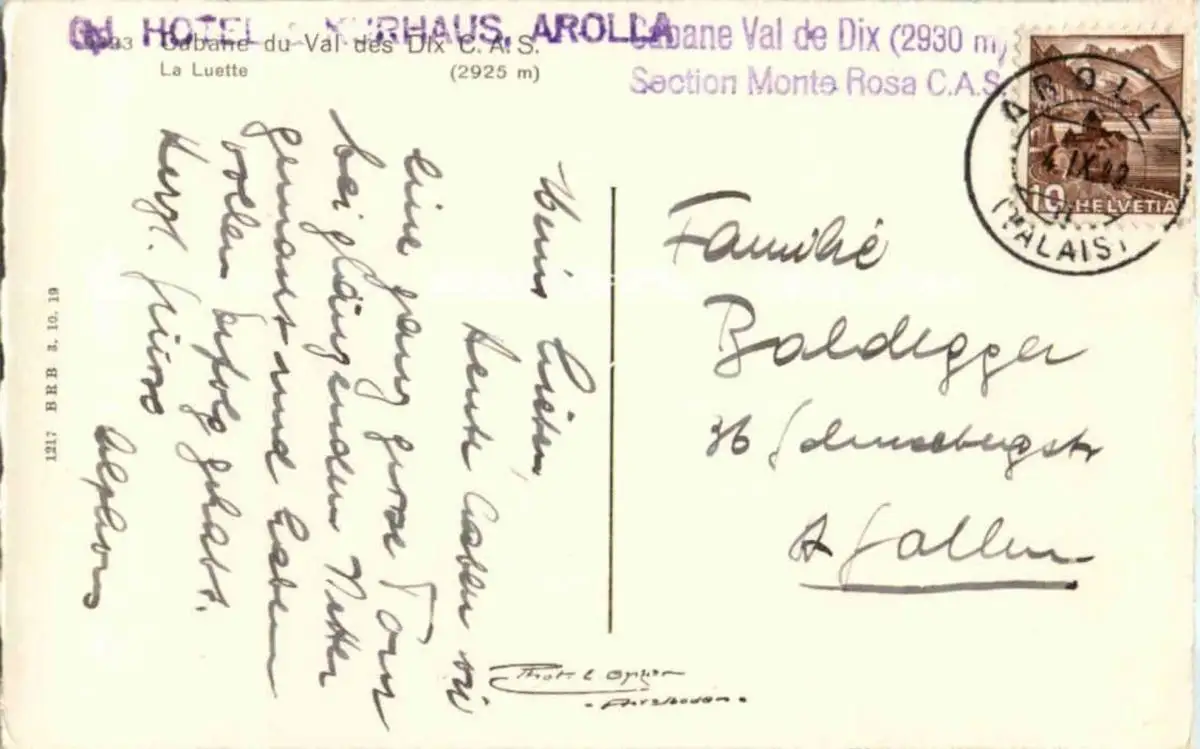 Gd. HOTEL & KURHAUS, AROLLA
Cabane du Val des Dix C.A.S.
La Luette (2925 m)
Cabane Val de Dix (2930 m)
Section Monte Rosa C.A.S
AROLLA
4.IX.42
(VALAIS)
10 HELVETIA
Meine Lieben,
Heute haben wir
eine ganz grosse Tour
bei glänzendem Wetter
gemacht und haben
vollen Erfolg gehabt.
Herzl. Grüsse
Alphons
Familie
Baldegger
36
St Gallen
1217 BRB 3. 10. 19
Phot.